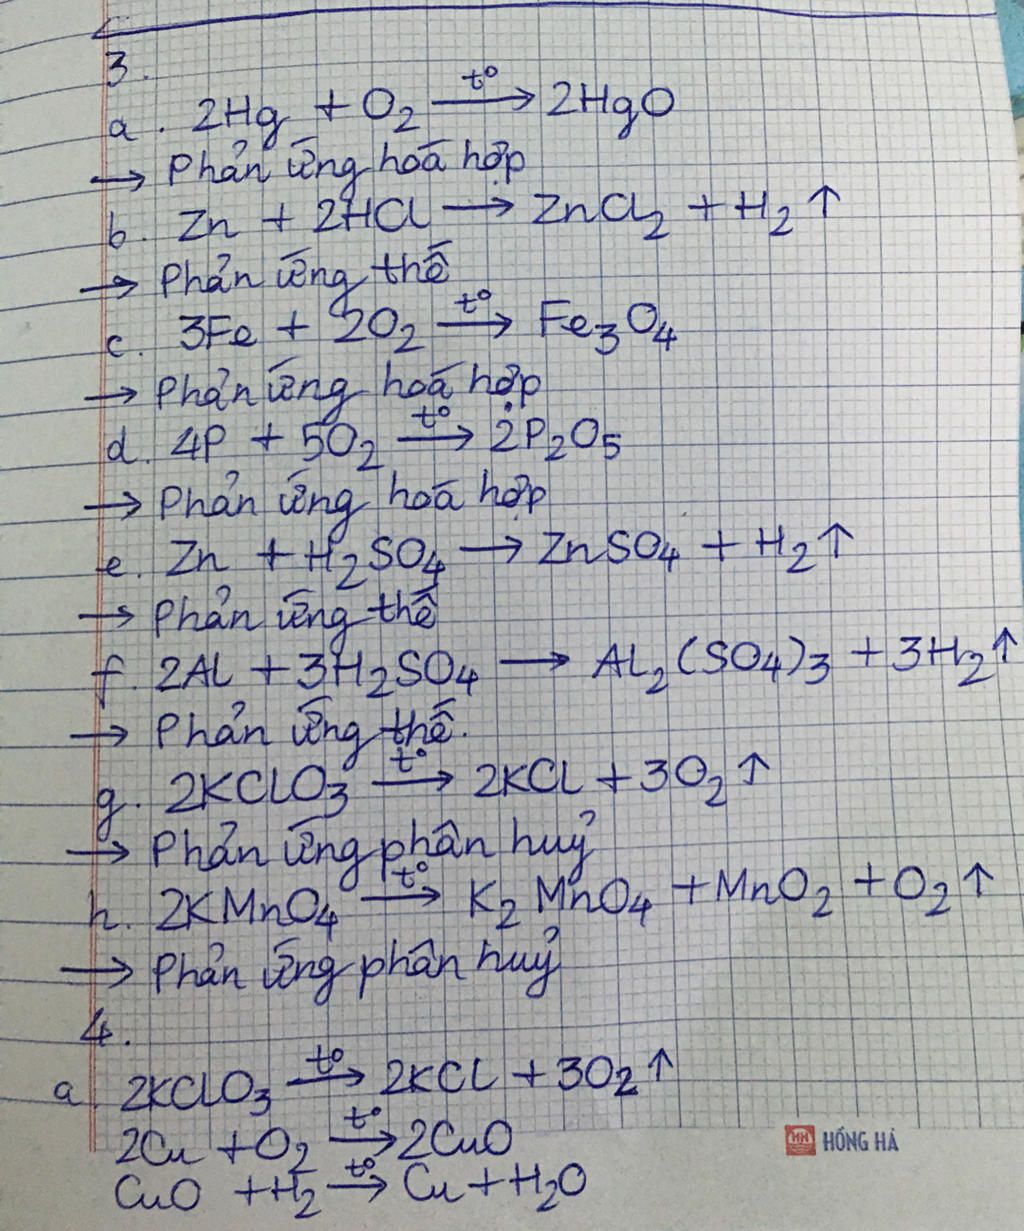 3.
a. 2Hg + O₂ —t°→ 2HgO
→ Phản ứng hoá hợp
b. Zn + 2HCl → ZnCl₂ + H₂↑
→ Phản ứng thế
c. 3Fe + 2O₂ —t°→ Fe₃O₄
→ Phản ứng hoá hợp
d. 4P + 5O₂ —t°→ 2P₂O₅
→ Phản ứng hoá hợp
e. Zn + H₂SO₄ → ZnSO₄ + H₂↑
→ Phản ứng thế
f. 2Al + 3H₂SO₄ → Al₂(SO₄)₃ + 3H₂↑
→ Phản ứng thế.
g. 2KClO₃ —t°→ 2KCl + 3O₂↑
→ Phản ứng phân huỷ
h. 2KMnO₄ —t°→ K₂MnO₄ + MnO₂ + O₂↑
→ Phản ứng phân huỷ
4.
a. 2KClO₃ —t°→ 2KCl + 3O₂↑
2Cu + O₂ —t°→ 2CuO
HH HỒNG HÀ
CuO + H₂ —t°→ Cu + H₂O